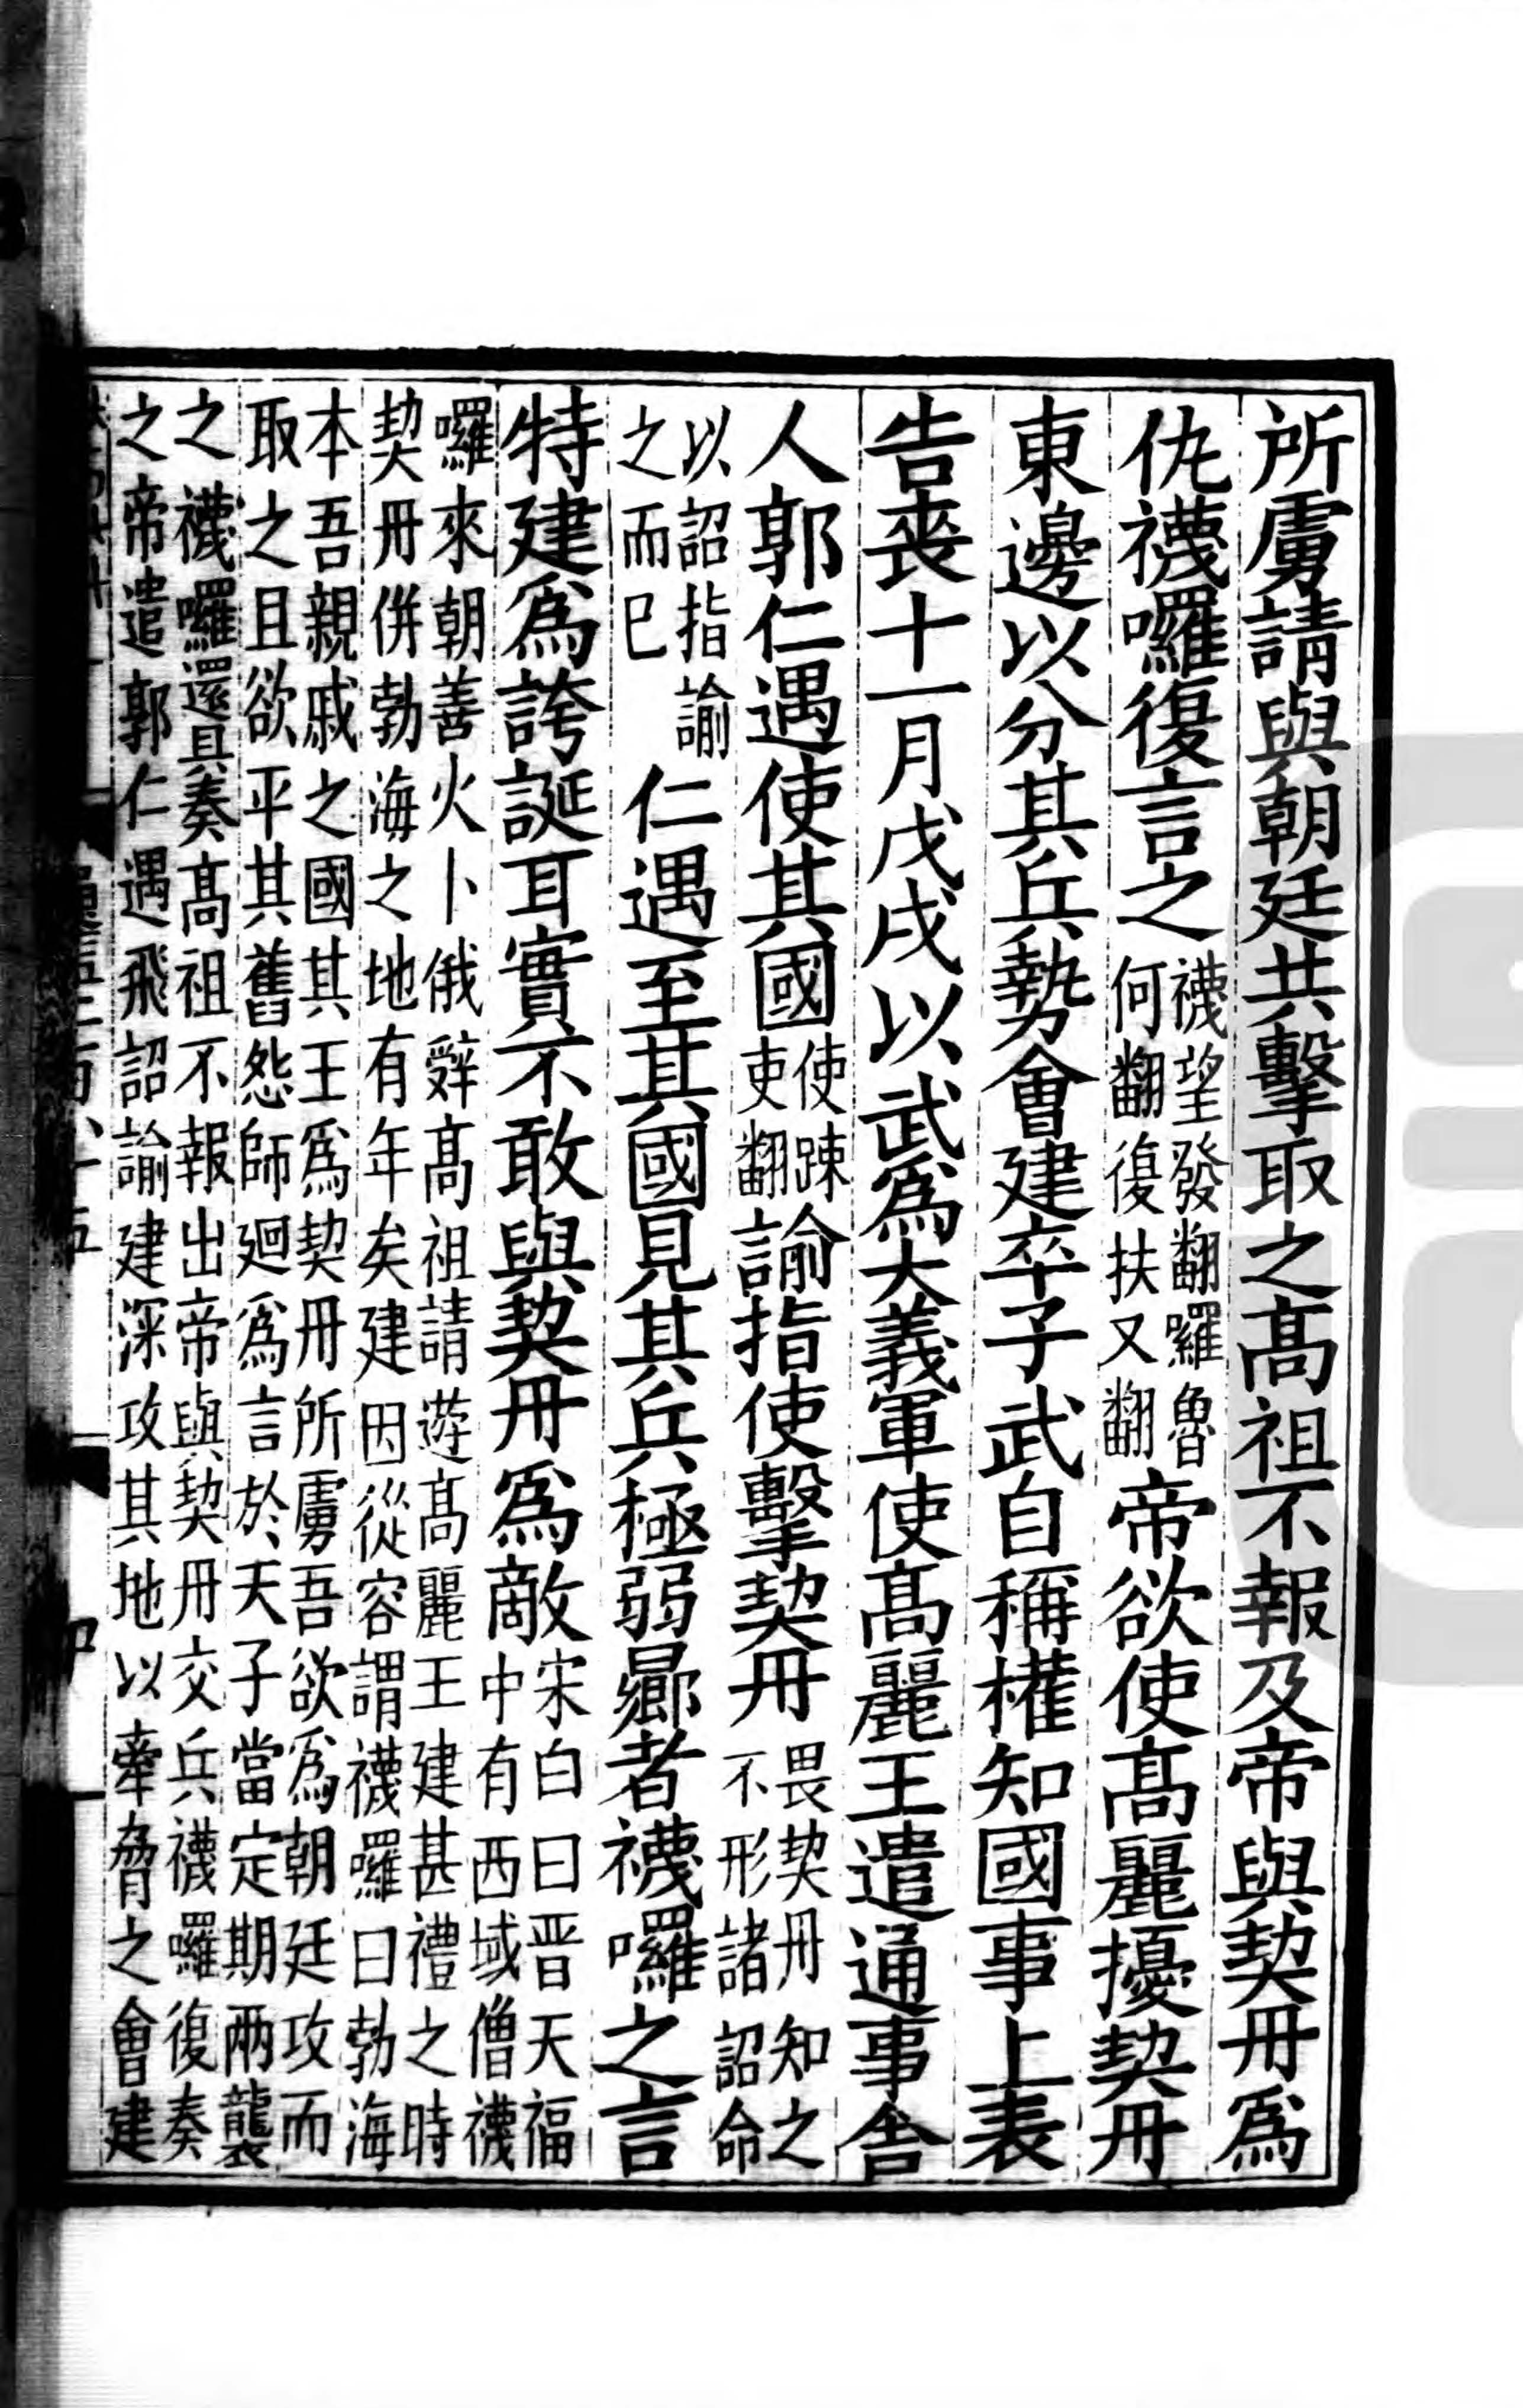 所虜請與朝廷共擊取之高祖不報及帝與契冊爲
仇襪囉復言之
襪望發翻囉魯
何翻復扶又翻
帝欲使高麗擾契冊
東邊以分其兵勢會建卒子武自稱權知國事上表
告喪十一月戊戌以武爲大義軍使高麗王遣通事舍
人郭仁遇使其國
使踈
吏翻
諭指使擊契冊
畏契冊知之
不形諸詔命
以詔指諭
之而已
仁遇至其國見其兵極弱曏者襪囉之言
特建爲誇誕耳實不敢與契冊爲敵
宋白曰晋天福
中有西域僧襪
囉來朝善火卜俄辭高祖請遊高麗王建甚禮之時
契冊併勃海之地有年矣建因從容謂襪囉曰勃海
本吾親戚之國其王爲契冊所虜吾欲爲朝廷攻而
取之且欲平其舊怨師廻爲言於天子當定期兩襲
之襪囉還具奏高祖不報出帝與契冊交兵襪囉復奏
之帝遣郭仁遇飛詔諭建深攻其地以牽脅之會建